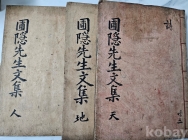 詩
圃隱先生文集 天
圃隱先生文集 地
圃隱先生文集 人
kobay